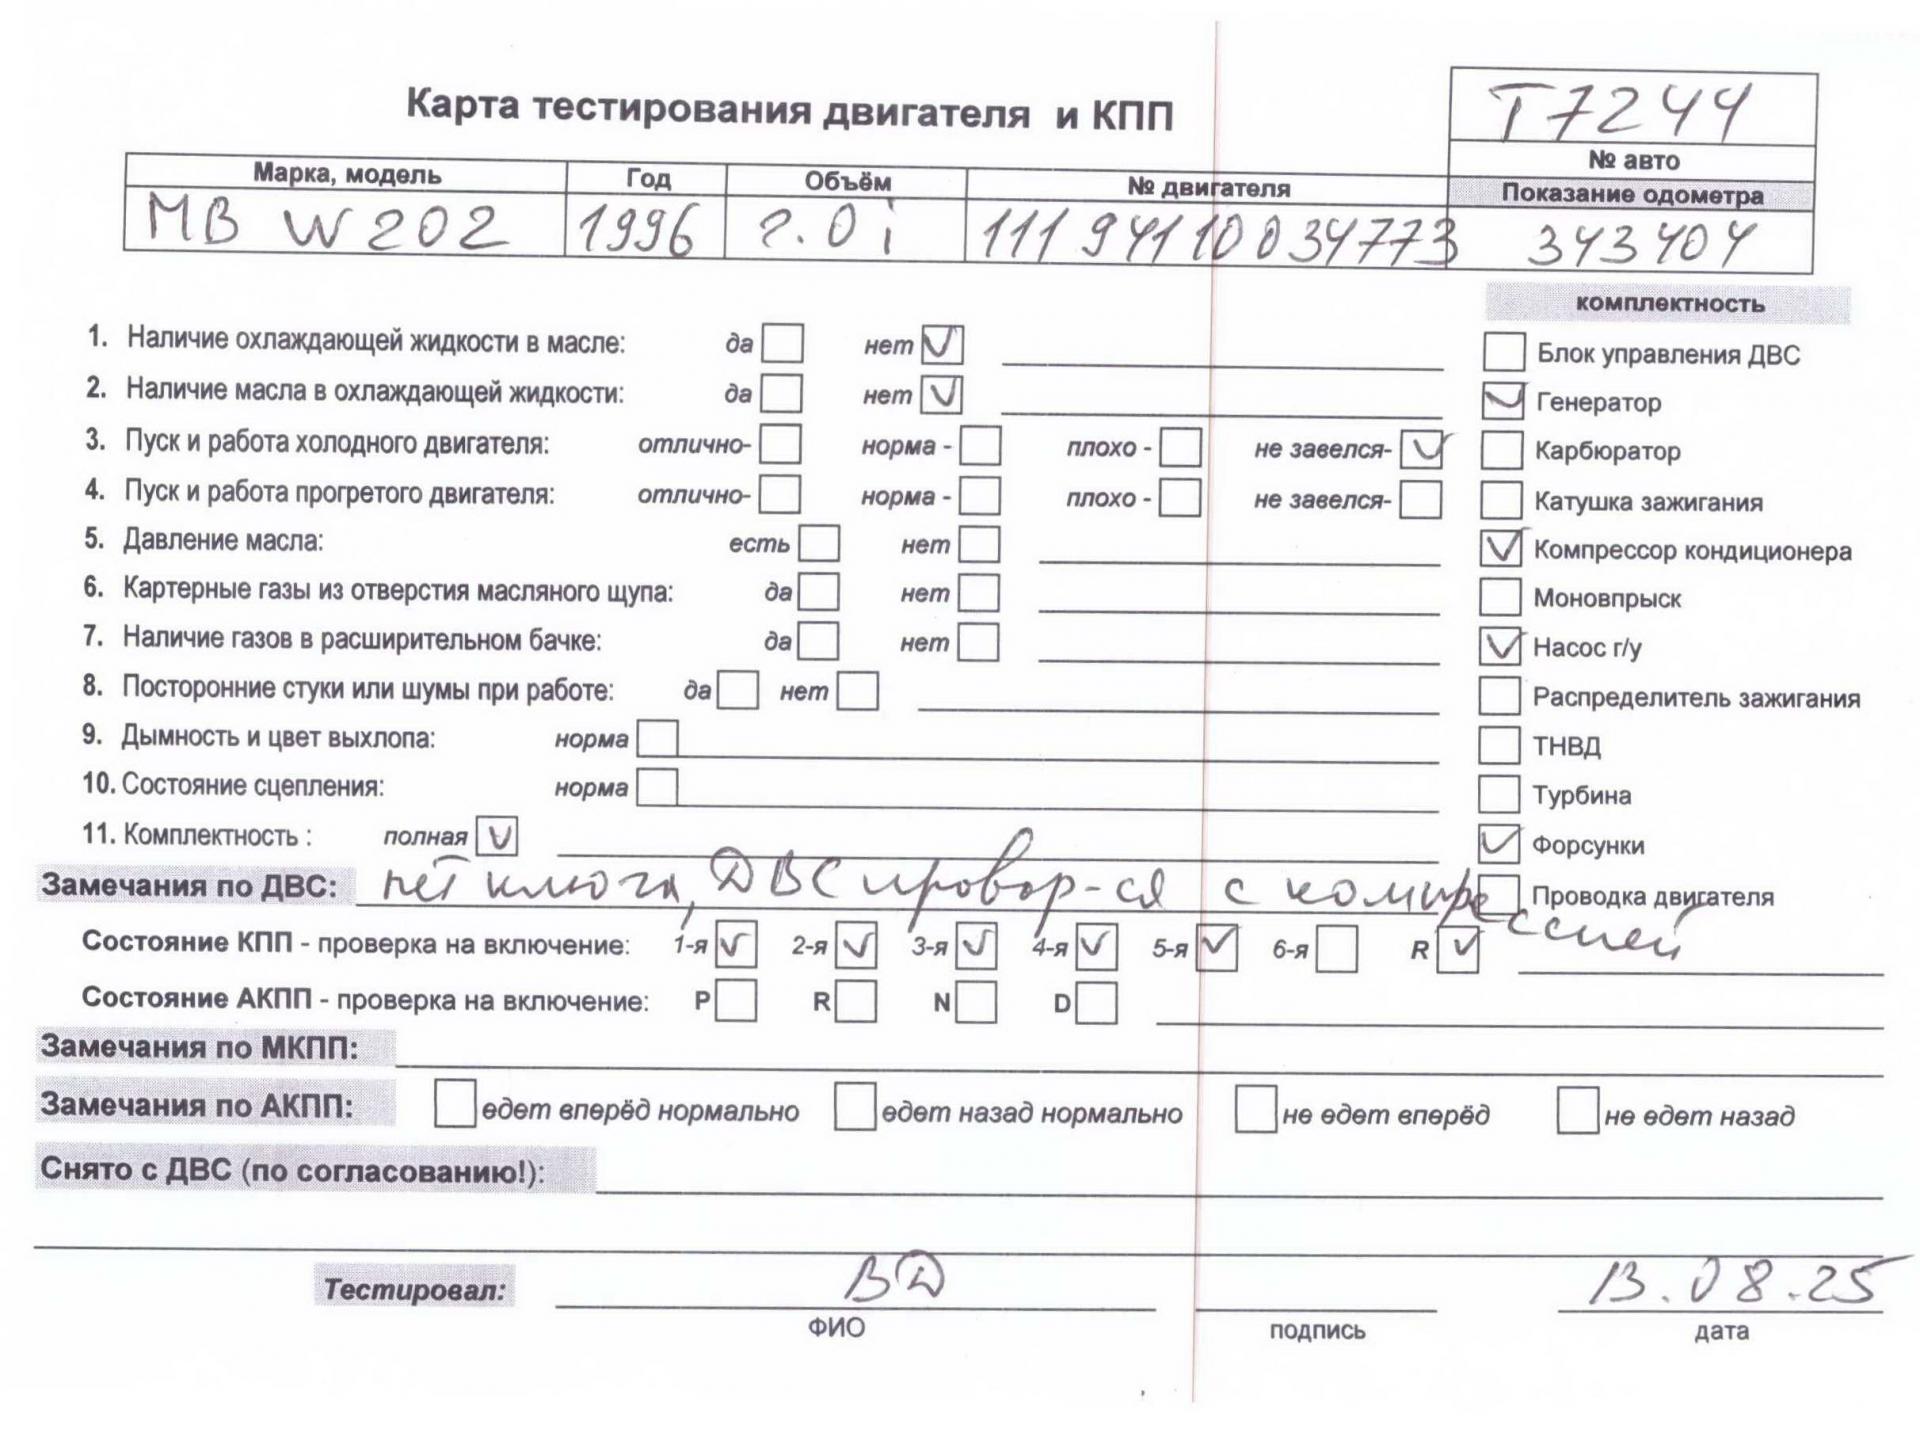 Карта тестирования двигателя и КПП
T7244
№ авто
Марка, модель Год Объём № двигателя Показание одометра
MB W202 1996 2.0 i 111 941 10 034773 343404
комплектность
1. Наличие охлаждающей жидкости в масле: да нет V
Блок управления ДВС
2. Наличие масла в охлаждающей жидкости: да нет V
V Генератор
3. Пуск и работа холодного двигателя: отлично- норма - плохо - не завелся- V
Карбюратор
4. Пуск и работа прогретого двигателя: отлично- норма - плохо - не завелся-
Катушка зажигания
5. Давление масла: есть нет
V Компрессор кондиционера
6. Картерные газы из отверстия масляного щупа: да нет
Моновпрыск
7. Наличие газов в расширительном бачке: да нет
V Насос г/у
8. Посторонние стуки или шумы при работе: да нет
Распределитель зажигания
9. Дымность и цвет выхлопа: норма
ТНВД
10. Состояние сцепления: норма
Турбина
11. Комплектность : полная V
V Форсунки
Замечания по ДВС: нет ключа, ДВС провер-ся с компрессией
Проводка двигателя
Состояние КПП - проверка на включение: 1-я V 2-я V 3-я V 4-я V 5-я V 6-я R V
Состояние АКПП - проверка на включение: P R N D
Замечания по МКПП:
Замечания по АКПП: едет вперёд нормально едет назад нормально не едет вперёд не едет назад
Снято с ДВС (по согласованию!):
Тестировал: ВД 13.08.25
ФИО подпись дата